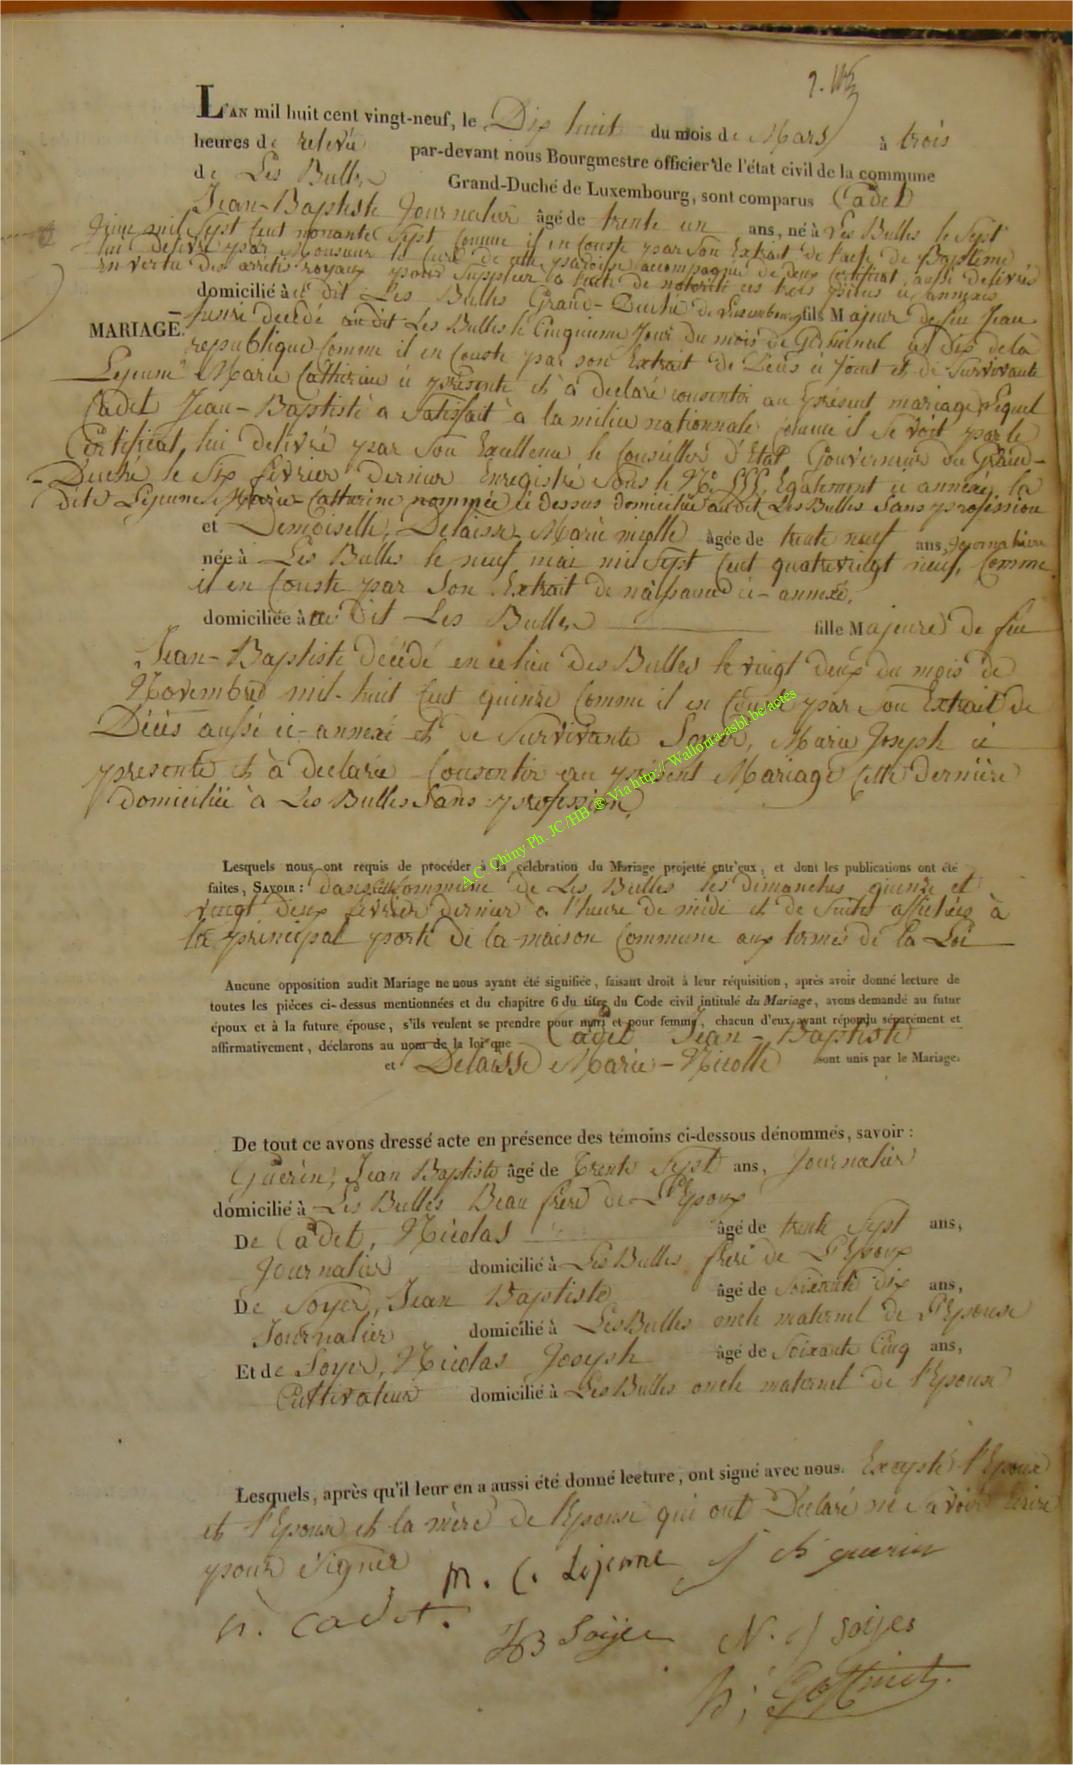 L'AN mil huit cent vingt-neuf, le Dix huit du mois de Mars à trois
heures de relevée par-devant nous Bourgmestre officier de l'état civil de la commune
de Les Bulles Grand-Duché de Luxembourg, sont comparus Cadet
Jean-Baptiste Journalier âgé de trente un ans, né à Les Bulles le Sept
mil Sept Cent nonante Sept Comme il en Conste par Son Extrait de l'acte de Baptême
lui délivré par Monsieur le Curé de cette paroisse accompagné de deux Certificat aussi delivrés
En vertu des arrêtés royaux pour Suppléer à l'acte de notorité ces trois pièces ci annexés
domicilié à dit Les Bulles Grand-Duché de Luxembourg fils Majeur de feu Jean
décédé audit Les Bulles le Cinquieme Jour du mois de Germinal an dix de la
MARIAGE.
republique Comme il en Conste par son Extrait de Décès ci Joint et de Survivante
Lejeune Marie Catherine ci présente et à déclaré consentir au présent mariage, lequel
Cadet Jean-Baptiste a Satisfait à la milice nationnale comme il se voit par le
Certificat lui delivré par Son Excellence le Conseiller d'Etat Gouverneur du Grand-
-Duché le Six février dernier Enregistré Sous le N° 555, Egalement ci annexé, la
dite Lejeune Marie-Catherine nommée ci dessus domiciliée audit Les Bulles Sans profession
et Demoiselle, Delaisse Marie nicolle âgée de trente neuf ans, Journalière
née à Les Bulles le neuf mai mil Sept Cent quatrevingt neuf, Comme
il en Conste par Son Extrait de naissance ci-annexé,
domiciliée à ce Dit Les Bulles fille Majeure de feu
Jean-Baptiste décédé en ce lieu des Bulles le vingt deux du mois de
Novembre mil-huit Cent quinze Comme il en Conste par son Extrait de
Décès aussi ci-annexé et de Survivante Soyer, Marie Joseph ci
présente et à declarée Consentir au présent Mariage Cette Dernière
domiciliée à Les Bulles Sans profession,
A.C. Chiny Ph. JC/HB @ Via http://Wallonia-asbl.be/actes
Lesquels nous ont requis de procéder à la célébration du Mariage projetté entr'eux, et dont les publications ont été
faites, SAVOIR : dans Commune de Les Bulles les dimanches quinze et
vingt deux février dernier à l'heure de midi et de suite affichées à
la principal porte de la maison Commune aux termes de la Loi
Aucune opposition audit Mariage ne nous ayant été signifiée, faisant droit à leur réquisition, après avoir donné lecture de
toutes les pièces ci-dessus mentionnées et du chapitre 6 du titre du Code civil intitulé du Mariage, avons demandé au futur
époux et à la future épouse, s'ils veulent se prendre pour mari et pour femme, chacun d'eux ayant répondu séparément et
affirmativement, déclarons au nom de la loi que Cadet Jean-Baptiste
et Delaisse Marie-Nicolle sont unis par le Mariage.
De tout ce avons dressé acte en présence des témoins ci-dessous dénommés, savoir :
Guerin, Jean Baptiste âgé de Trente Sept ans, Journalier
domicilié à Les Bulles Beau frère de L'Epoux
De Cadet, Nicolas âgé de trente Sept ans,
Journalier domicilié à Les Bulles frère de L'Epoux
De Soyer, Jean Baptiste âgé de Soixante dix ans,
Journalier domicilié à Les Bulles oncle maternel de l'Epouse
Et de Soyer, Nicolas Joseph âgé de Soixante Cinq ans,
Cultivateur domicilié à Les Bulles oncle maternel de l'Epouse
Lesquels, après qu'il leur en a aussi été donné lecture, ont signé avec nous. Excepté l'Epoux
et l'Epouse et la mère de l'Epouse qui ont Déclaré ne Savoir Ecrire
pour Signer
M. C. Lejeune J b guerin
n. cadet.
JB Soijer N. J Soijer